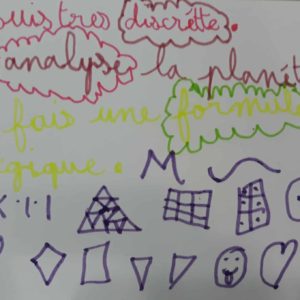 suis tres discrète.
analyse la planèt
fais une formule
gique. M